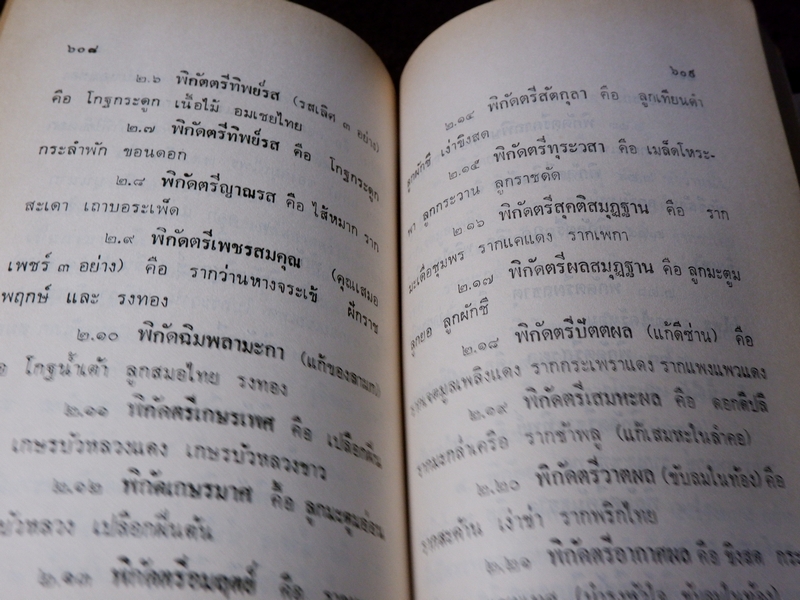 ๖๐๘
๒.๖ พิกัดตรีทิพย์รส (รสเลิศ ๓ อย่าง)
คือ โกฐกระดูก เนื้อไม้ อมเชยไทย
๒.๗ พิกัดตรีทิพย์รส คือ โกฐกระดูก
กระลำพัก ขอนดอก
๒.๘ พิกัดตรีญาณรส คือ ไส้หมาก ราก
สะเดา เถาบอระเพ็ด
๒.๙ พิกัดตรีเพชรสมคุณ (คุณเสมอ
เพชร์ ๓ อย่าง) คือ รากว่านหางจระเข้ ฝักราช
พฤกษ์ และ รงทอง
๒.๑๐ พิกัดฉิมพลามะกา (แก้ของลามก)
โกฐน้ำเต้า ลูกสมอไทย รงทอง
๒.๑๑ พิกัดตรีเกษรเพศ คือ เปลือกฝิ่น
เกษรบัวหลวงแดง เกษรบัวหลวงขาว
๒.๑๒ พิกัดเกษรมาศ คือ ลูกมะตูมอ่อน
บัวหลวง เปลือกฝิ่นต้น
๒.๑๓ พิกัดตรีอมฤตย์ คือ
๖๐๙
๒.๑๔ พิกัดตรีสัตกุลา คือ ลูกเทียนดำ
ลูกผักชี เง่าขิงสด
๒.๑๕ พิกัดตรีทุระวสา คือ เมล็ดโหระ-
พา ลูกกระวาน ลูกราชดัด
๒.๑๖ พิกัดตรีสุคติสมุฏฐาน คือ ราก
มะเดื่อชุมพร รากแคแดง รากเพกา
๒.๑๗ พิกัดตรีผลสมุฏฐาน คือ ลูกมะตูม
ลูกยอ ลูกผักชี
๒.๑๘ พิกัดตรีปัตตผล (แก้ดีซ่าน) คือ
รากเจตมูลเพลิงแดง รากกระเพราแดง รากแพงแพวแดง
๒.๑๙ พิกัดตรีเสมหะผล คือ ดอกดีปลี
รากมะกล่ำเครือ รากช้าพลู (แก้เสมหะในลำคอ)
๒.๒๐ พิกัดตรีวาตผล (ขับลมในท้อง) คือ
รากสะค้าน เง่าข่า รากพริกไทย
๒.๒๑ พิกัดตรีอากาศผล คือ ขิงสด กระ
(บำรุงหัวใจ ขับลมในท้อง)